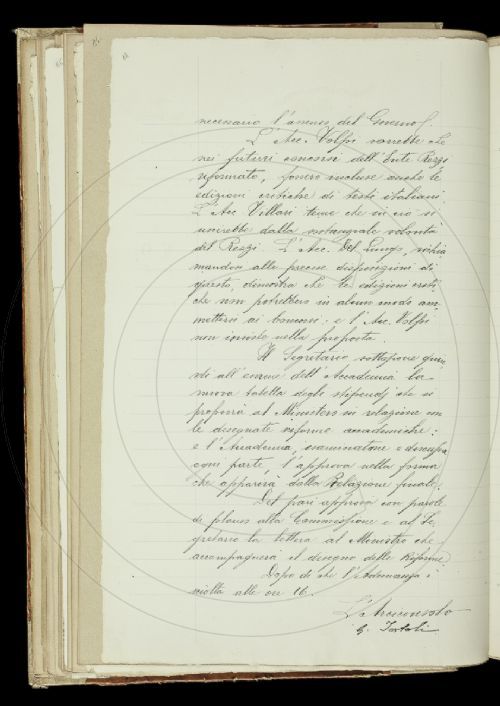 necessario l'assenso del Governo.
L'Acc. Volpi vorrebbe che
nei futuri concorsi dell'Ente Rezzi
riformato, fossero incluse anche le
edizioni critiche di testi italiani.
L'Acc. Villari teme che in ciò si
uscirebbe dalla testuale volontà
del Rezzi. L'Acc. Del Lungo, richia
mandosi alle precise disposizioni di
questo, dimostra che le edizioni criti
che non potrebbero in alcun modo am
mettersi ai concorsi; e l'Acc. Volpi
non insiste nella proposta.
Il Segretario sottopone quin
di all'esame dell'Accademia la
nuova tabella degli stipendj che si
proporrà al Ministero in relazione con
le disegnate riforme accademiche;
e l'Accademia, esaminatone e discussa
ogni parte, l'approva nella forma
che apparerà dalla Relazione finale.
Del pari approva con parole
di plauso alla Commissione e al Se
gretario la lettera al Ministro che
accompagnerà il disegno delle Riforme.
Dopo di che l'Adunanza è
sciolta alle ore 16.
L'Arciconsolo
G. Tortoli